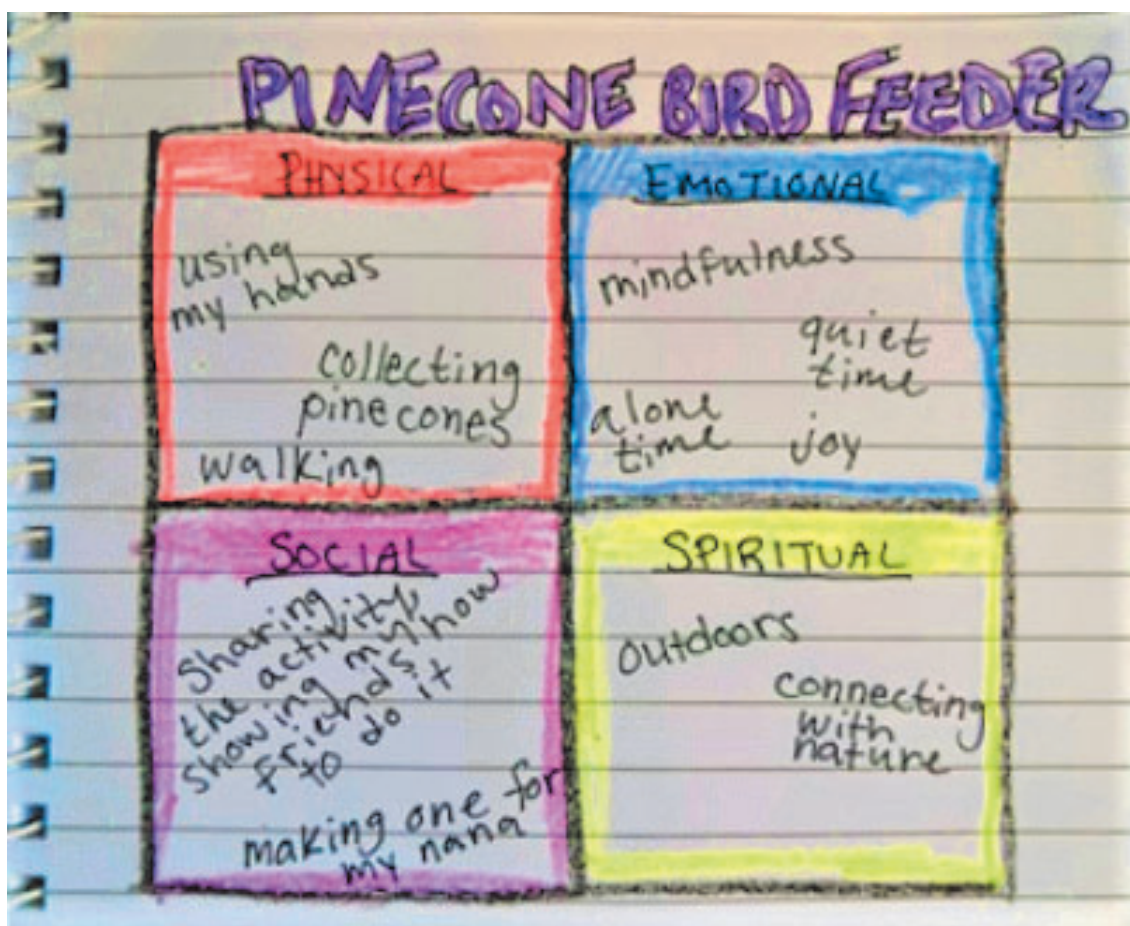 PINECONE BIRD FEEDER
PHYSICAL
using
my hands
collecting
pinecones
walking
EMOTIONAL
mindfulness
quiet
time
alone
time
joy
SOCIAL
Sharing
the activity,
showing my
friends how
to do it
making one for
my nana
SPIRITUAL
outdoors
connecting
with
nature